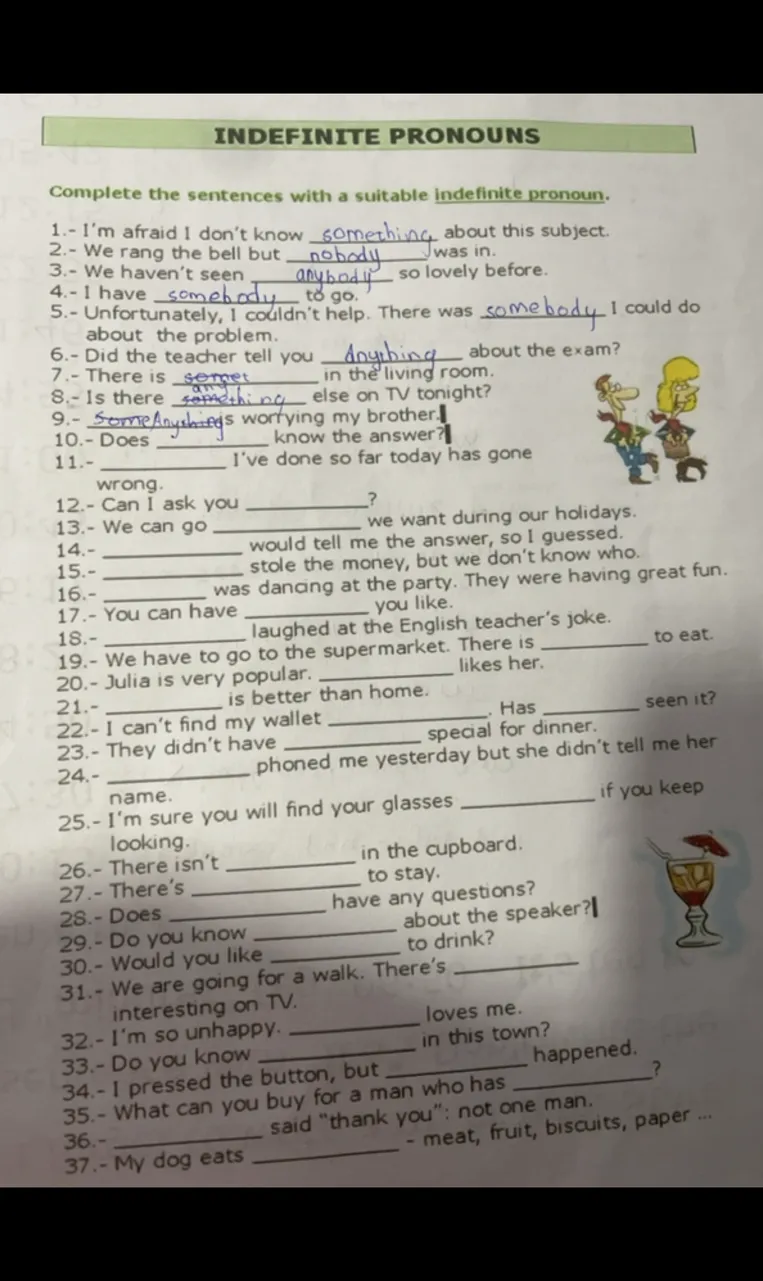 INDEFINITE PRONOUNS
Complete the sentences with a suitable indefinite pronoun.
1.- I'm afraid I don't know something about this subject.
2.- We rang the bell but nobody was in.
3.- We haven't seen anybody so lovely before.
4.- I have somebody to go.
5.- Unfortunately, I couldn't help. There was somebody I could do
about the problem.
6.- Did the teacher tell you Anything about the exam?
7.- There is somet in the living room.
8.- Is there something any else on TV tonight?
9.- Some Anything is worrying my brother.
10.- Does ____________ know the answer?
11.- ____________ I've done so far today has gone
wrong.
12.- Can I ask you ____________?
13.- We can go ____________ we want during our holidays.
14.- ____________ would tell me the answer, so I guessed.
15.- ____________ stole the money, but we don't know who.
16.- ____________ was dancing at the party. They were having great fun.
17.- You can have ____________ you like.
18.- ____________ laughed at the English teacher's joke.
19.- We have to go to the supermarket. There is ____________ to eat.
20.- Julia is very popular. ____________ likes her.
21.- ____________ is better than home.
22.- I can't find my wallet ____________. Has ____________ seen it?
23.- They didn't have ____________ special for dinner.
24.- ____________ phoned me yesterday but she didn't tell me her
name.
25.- I'm sure you will find your glasses ____________ if you keep
looking.
26.- There isn't ____________ in the cupboard.
27.- There's ____________ to stay.
28.- Does ____________ have any questions?
29.- Do you know ____________ about the speaker?
30.- Would you like ____________ to drink?
31.- We are going for a walk. There's ____________
interesting on TV.
32.- I'm so unhappy. ____________ loves me.
33.- Do you know ____________ in this town?
34.- I pressed the button, but ____________ happened.
35.- What can you buy for a man who has ____________?
36.- ____________ said "thank you": not one man.
37.- My dog eats ____________ - meat, fruit, biscuits, paper ...